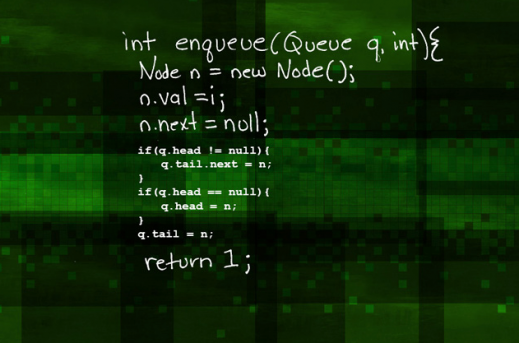 int enqueue(Queue q, int){
Node n = new Node();
n.val = i;
n.next = null;
if(q.head != null){
q.tail.next = n;
}
if(q.head == null){
q.head = n;
}
q.tail = n;
return 1;